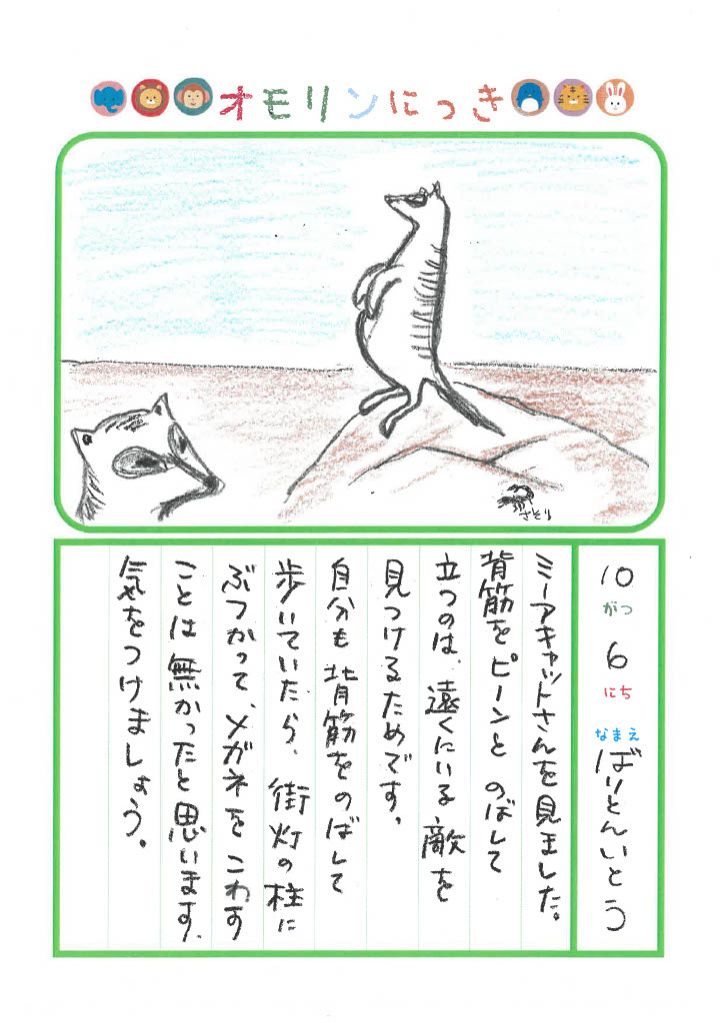 オモリンにっき
さそり
10がつ6にち なまえ ばりとんいとう
ミーアキャットさんを見ました。
背筋をピーンとのばして
立つのは、遠くにいる敵を
見つけるためです。
自分も背筋をのばして
歩いていたら、街灯の柱に
ぶつかって、メガネをこわす
ことは無かったと思います。
気をつけましょう。